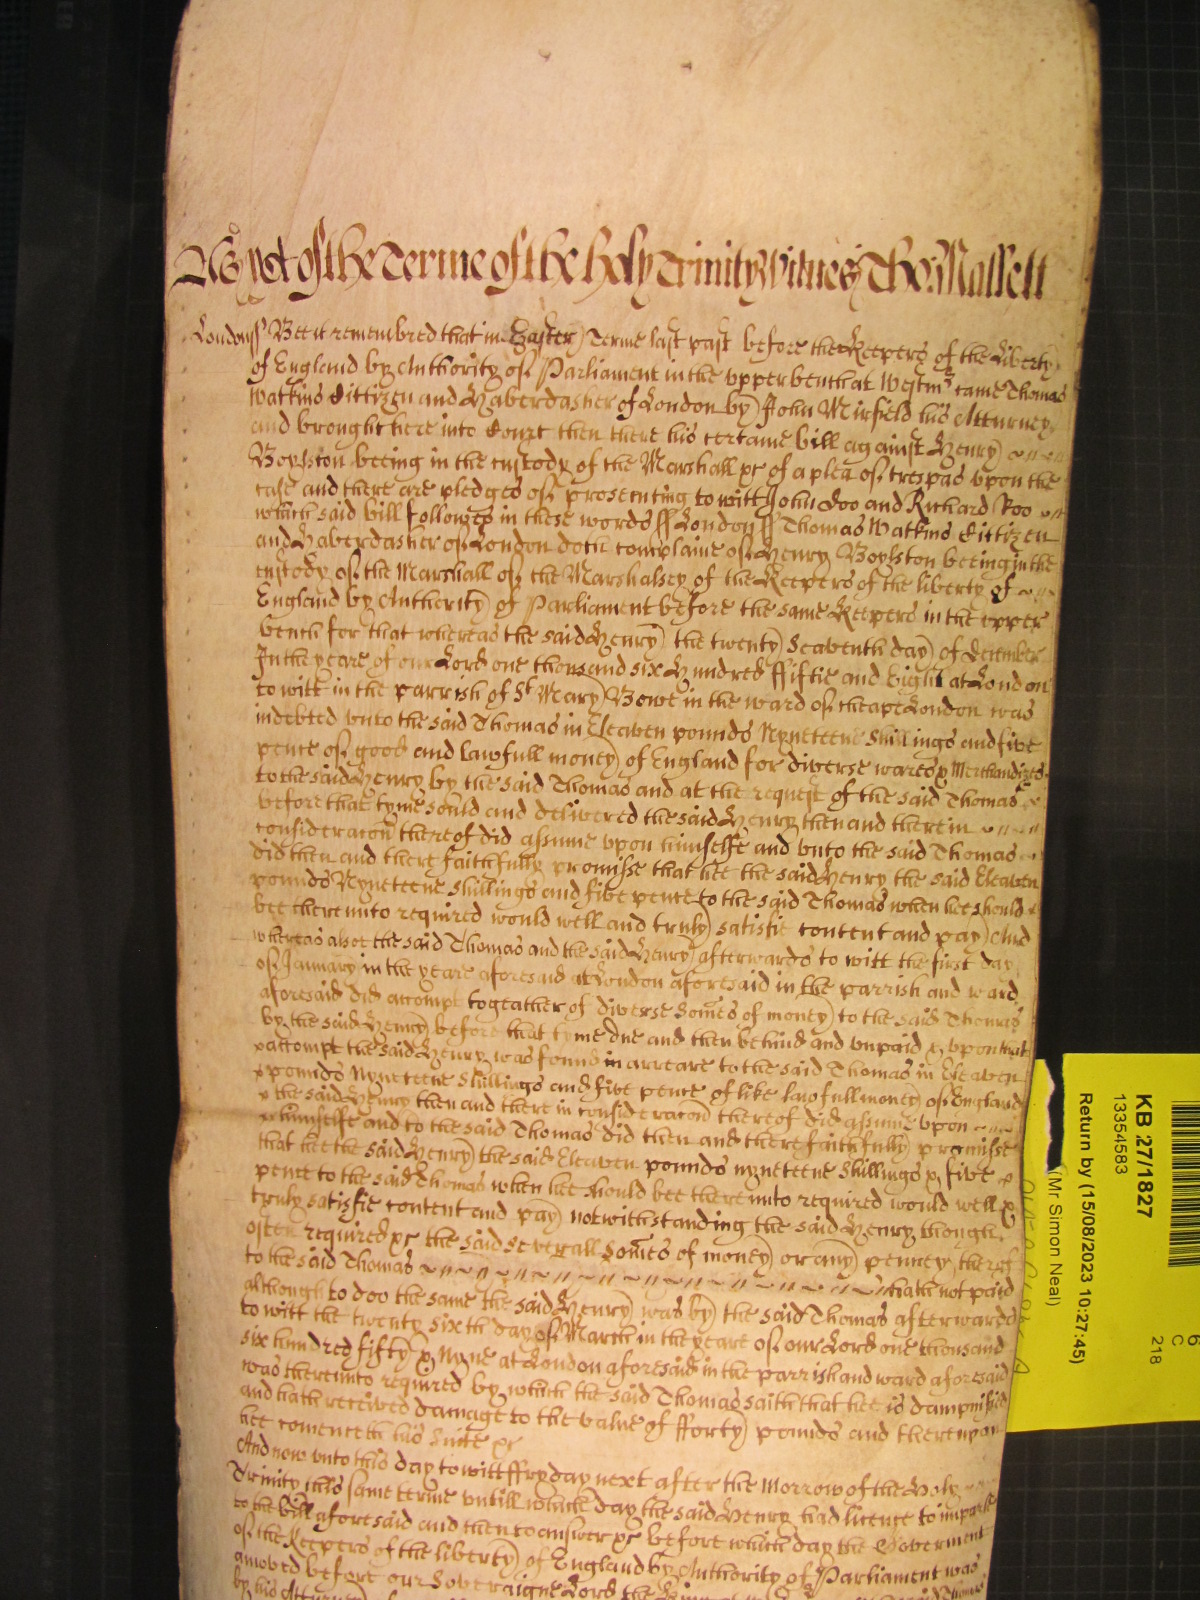 As yet of the Terme of the holy Trinity Witnes Tho: Mallett
London ss Bee it remembred that in Easter Terme last past before the Keepers of the Liberty
of England by Authority of Parliament in the upper bench at Westmr came Thomas
Watkins Cittizen and Haberdasher of London by John Mirfield his Atturney
and brought here into Court then there his certaine bill against Henry
Boylston beeing in the custody of the Marshall &c of a plea of trespas upon the
case and there are pledges of prosecuting to witt John Doo and Richard Roo
which said bill followes in these words ss London ss Thomas Watkins Cittizen
and Haberdasher of London doth complaine of Henry Boylston beeing in the
custody of the Marshall of the Marshalsey of the Keepers of the liberty of
England by Authority of Parliament before the same Keepers in the upper
bench for that whereas the said Henry the twenty Seaventh day of December
In the yeare of our Lord one thousand six Hundred ffiftie and Eight at London
to witt in the parrish of St Mary Bowe in the ward of Cheape London was
indebted unto the said Thomas in Eleaven pounds Nyneteene Shillings and five
pence of good and lawfull money of England for diverse wares & Merchandizes
to the said Henry by the said Thomas and at the request of the said Thomas
before that tyme sould and delivered the said Henry then and there in
consideracon thereof did assume upon himselfe and unto the said Thomas
did then and there faithfully promisse that hee the said Henry the said Eleaven
pounds Nyneteene shillings and five pence to the said Thomas when hee should
bee thereunto required would well and truly satisfie content and pay And
whereas alsoe the said Thomas and the said Henry afterwards to witt the first day
of January in the yeare aforesaid at London aforesaid in the parrish and ward
aforesaid did accompt togeather of diverse Somes of money to the said Thomas
by the said Henry before that tyme due and then behind and unpaid & upon that
accompt the said Henry was found in arreare to the said Thomas in Eleaven
pounds Nyneteene Shillings and five pence of like lawfull money of England
& the said Henry then and there in consideracon thereof did assume upon
himselfe and to the said Thomas did then and there faithfully promisse
that hee the said Henry the said Eleaven pounds nyneteene Shillings & five
pence to the said Thomas when hee should bee thereunto required would well &
truly satisfie content and pay notwithstanding the said Henry though
often required &c the said severall Somes of money or any penney thereof
to the said Thomas hath not paid
although to doo the same the said Henry was by the said Thomas afterwards
to witt the twenty sixth day of March in the yeare of our Lord one thousand
six hundred fifty & Nyne at London aforesaid in the parrish and ward aforesaid
was thereunto required by which the said Thomas saith that hee is dampnified
and hath received damage to the value of fforty pounds and thereupon
hee comenceth his Suite &c
And now unto this day to witt ffryday next after the Morrow of the Holy
Trinity this same terme untill which day the said Henry had licence to imparle
to the bill aforesaid and then to answer &c before which day the Goverment
of the Keepers of the liberty of England by Authority of Parliament was
amoved before our Soveraigne Lord the King
by his Atturney
KB 27/1827
13354583
Return by (15/08/2023 10:27:45)
(Mr Simon Neal)
6
C
218